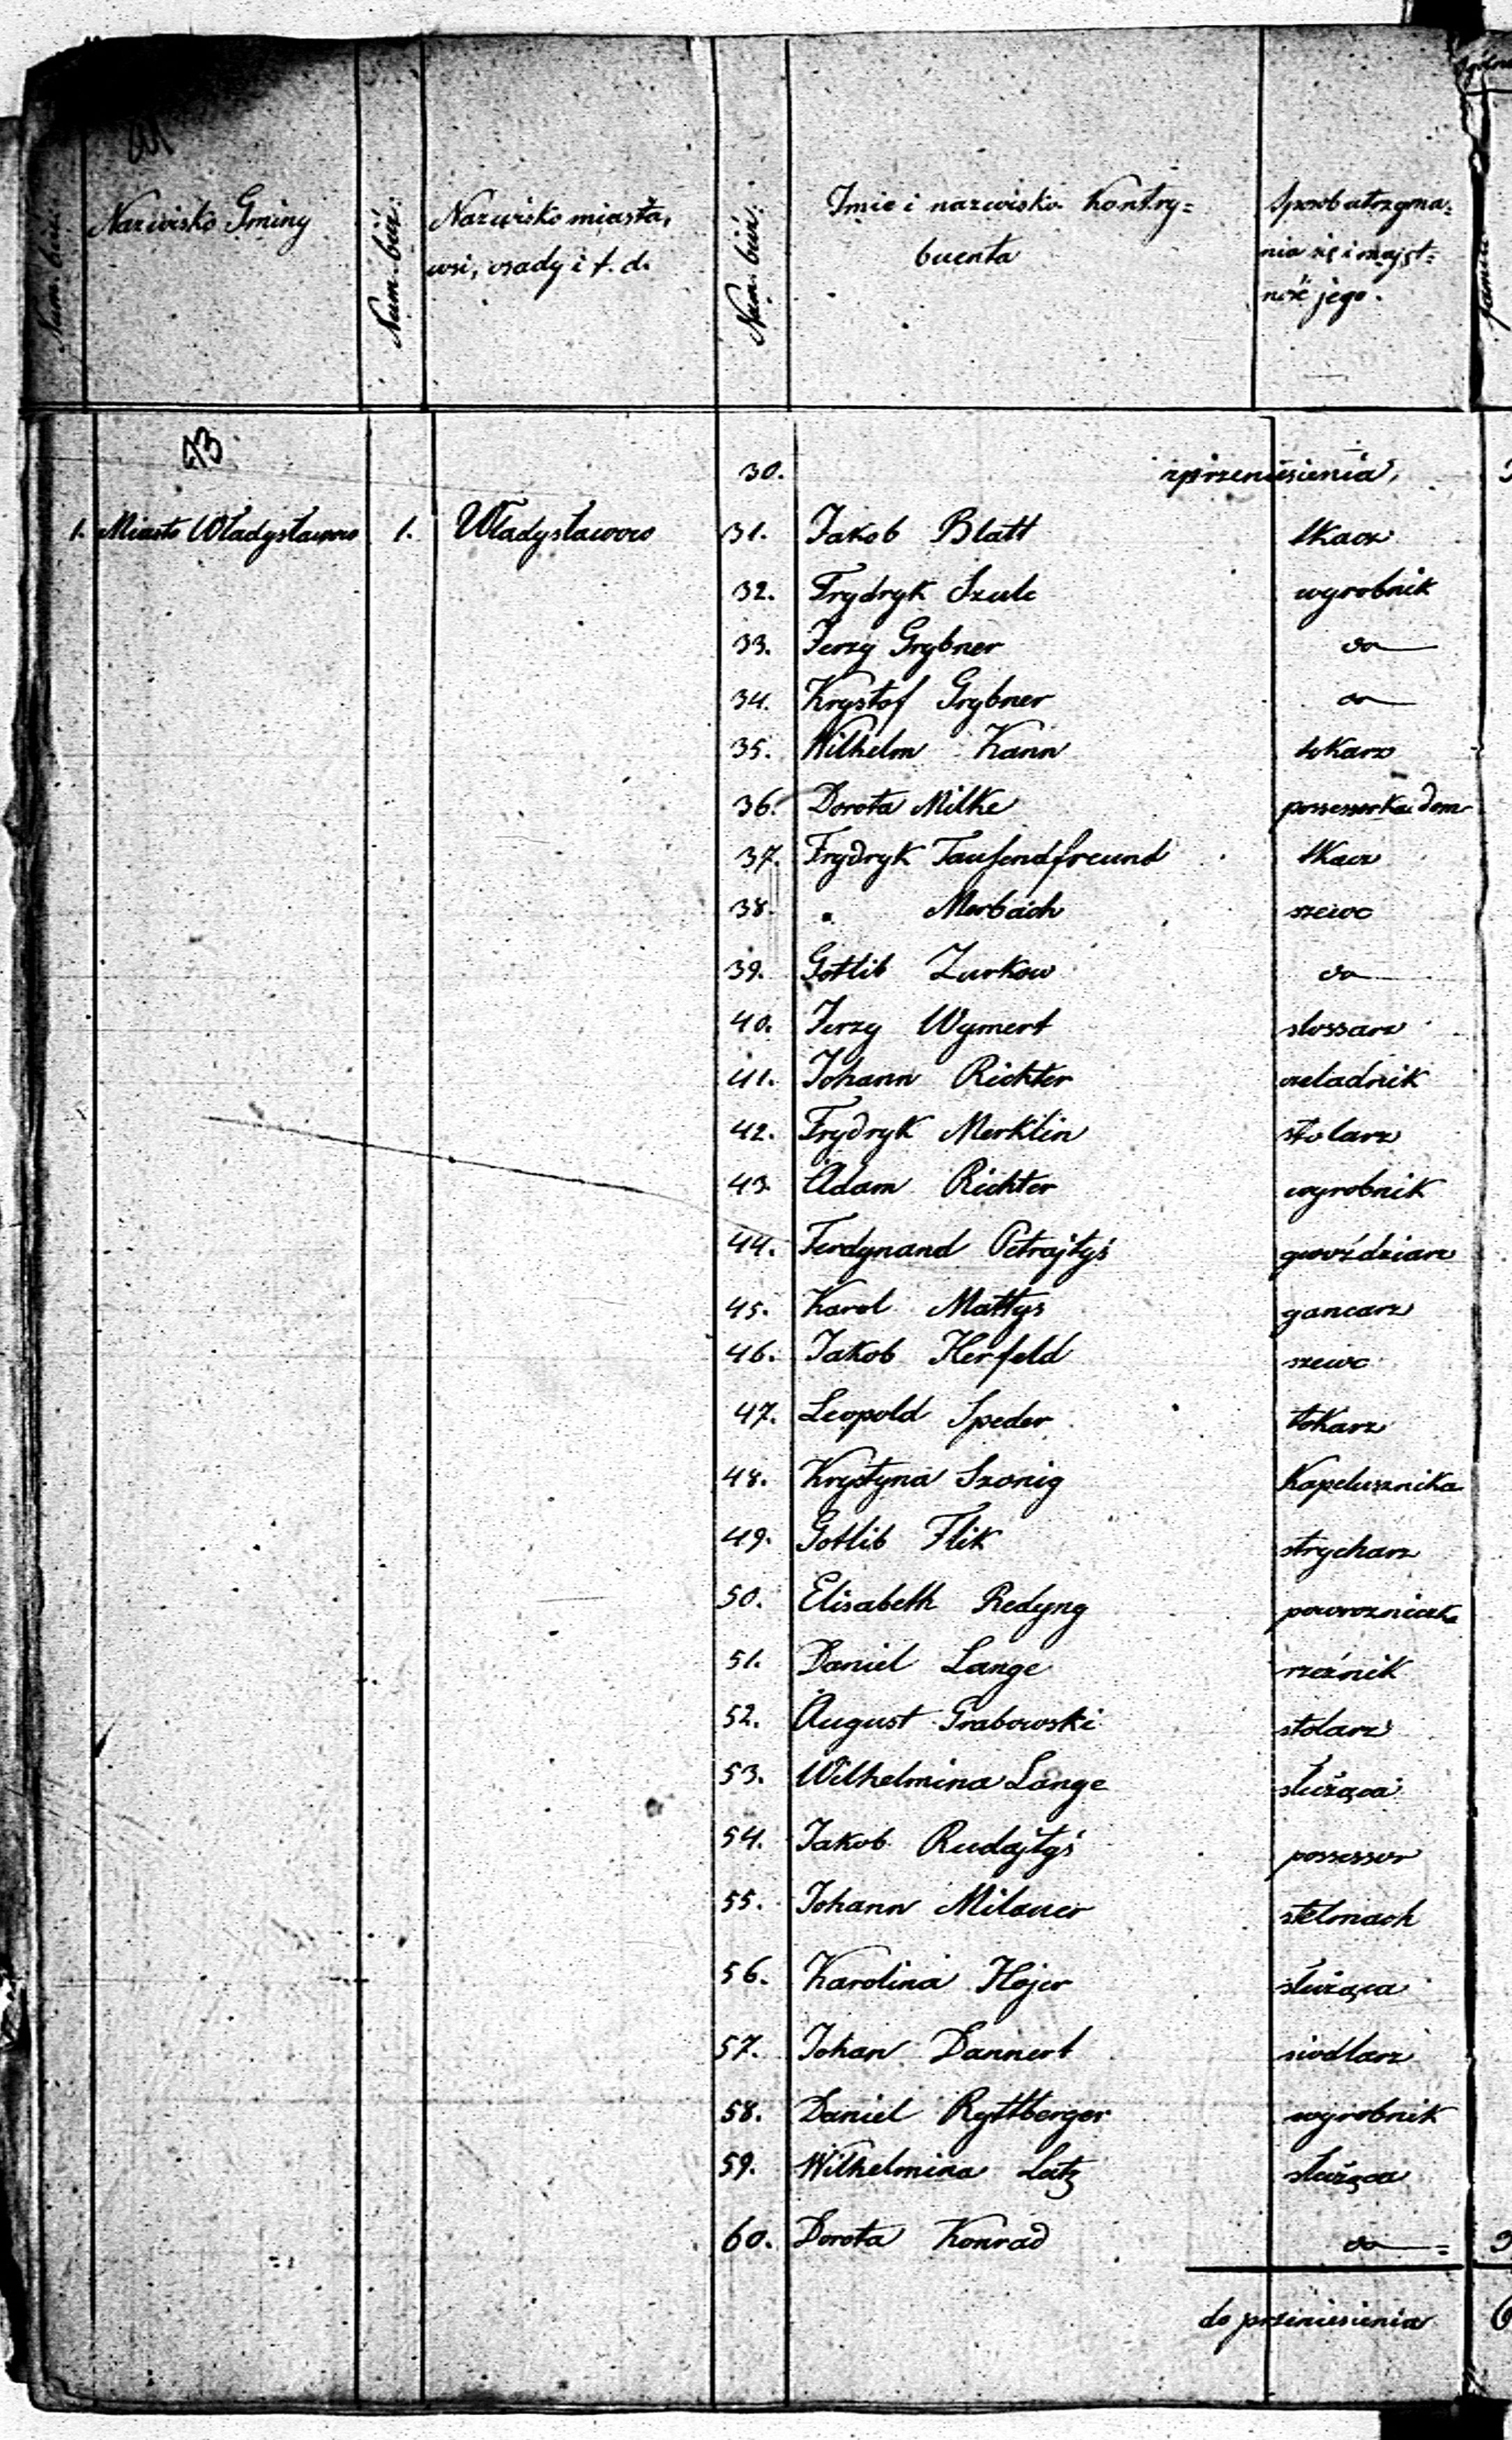 Num. bież.
Nazwisko Gminy
Num. bież.
Nazwisko miasta,
wsi, osady i t. d.
Num. bież.
Imie i nazwisko Kontry=
buenta
Sposób utrzyma=
nia się i majęt=
ność jego.
43
30. zprzeniesienia
1. Miasto Władysławowo 1. Władysławowo 31. Jakob Blatt tkacz
32. Frydryk Szulc wyrobnik
33. Jerzy Grybner do
34. Krystof Grybner do
35. Wilhelm Kann tokarz
36. Dorota Milke possessorka dom
37. Frydryk Tausendfreund tkacz
38. " Merbach szewc
39. Gotlib Zurkow do
40. Jerzy Wymert slossarz
41. Johann Richter czeladnik
42. Frydryk Merklin stolarz
43. Adam Richter wyrobnik
44. Ferdynand Petrajtyś gwoździarz
45. Karol Mattys gancarz
46. Jakob Herfeld szewc
47. Leopold Speder tokarz
48. Krystyna Szonig Kapelusznika
49. Gotlib Flik strycharz
50. Elisabeth Redyng powrozniczka
51. Daniel Lange rzeźnik
52. August Grabowski stolarz
53. Wilhelmina Lange służąca
54. Jakob Rudajtyś possessor
55. Johann Milauer stelmach
56. Karolina Hojer służąca
57. Johan Dannert siodlarz
58. Daniel Ryttberger wyrobnik
59. Wilhelmina Letz służąca
60. Dorota Konrad do =
do przeniesienia